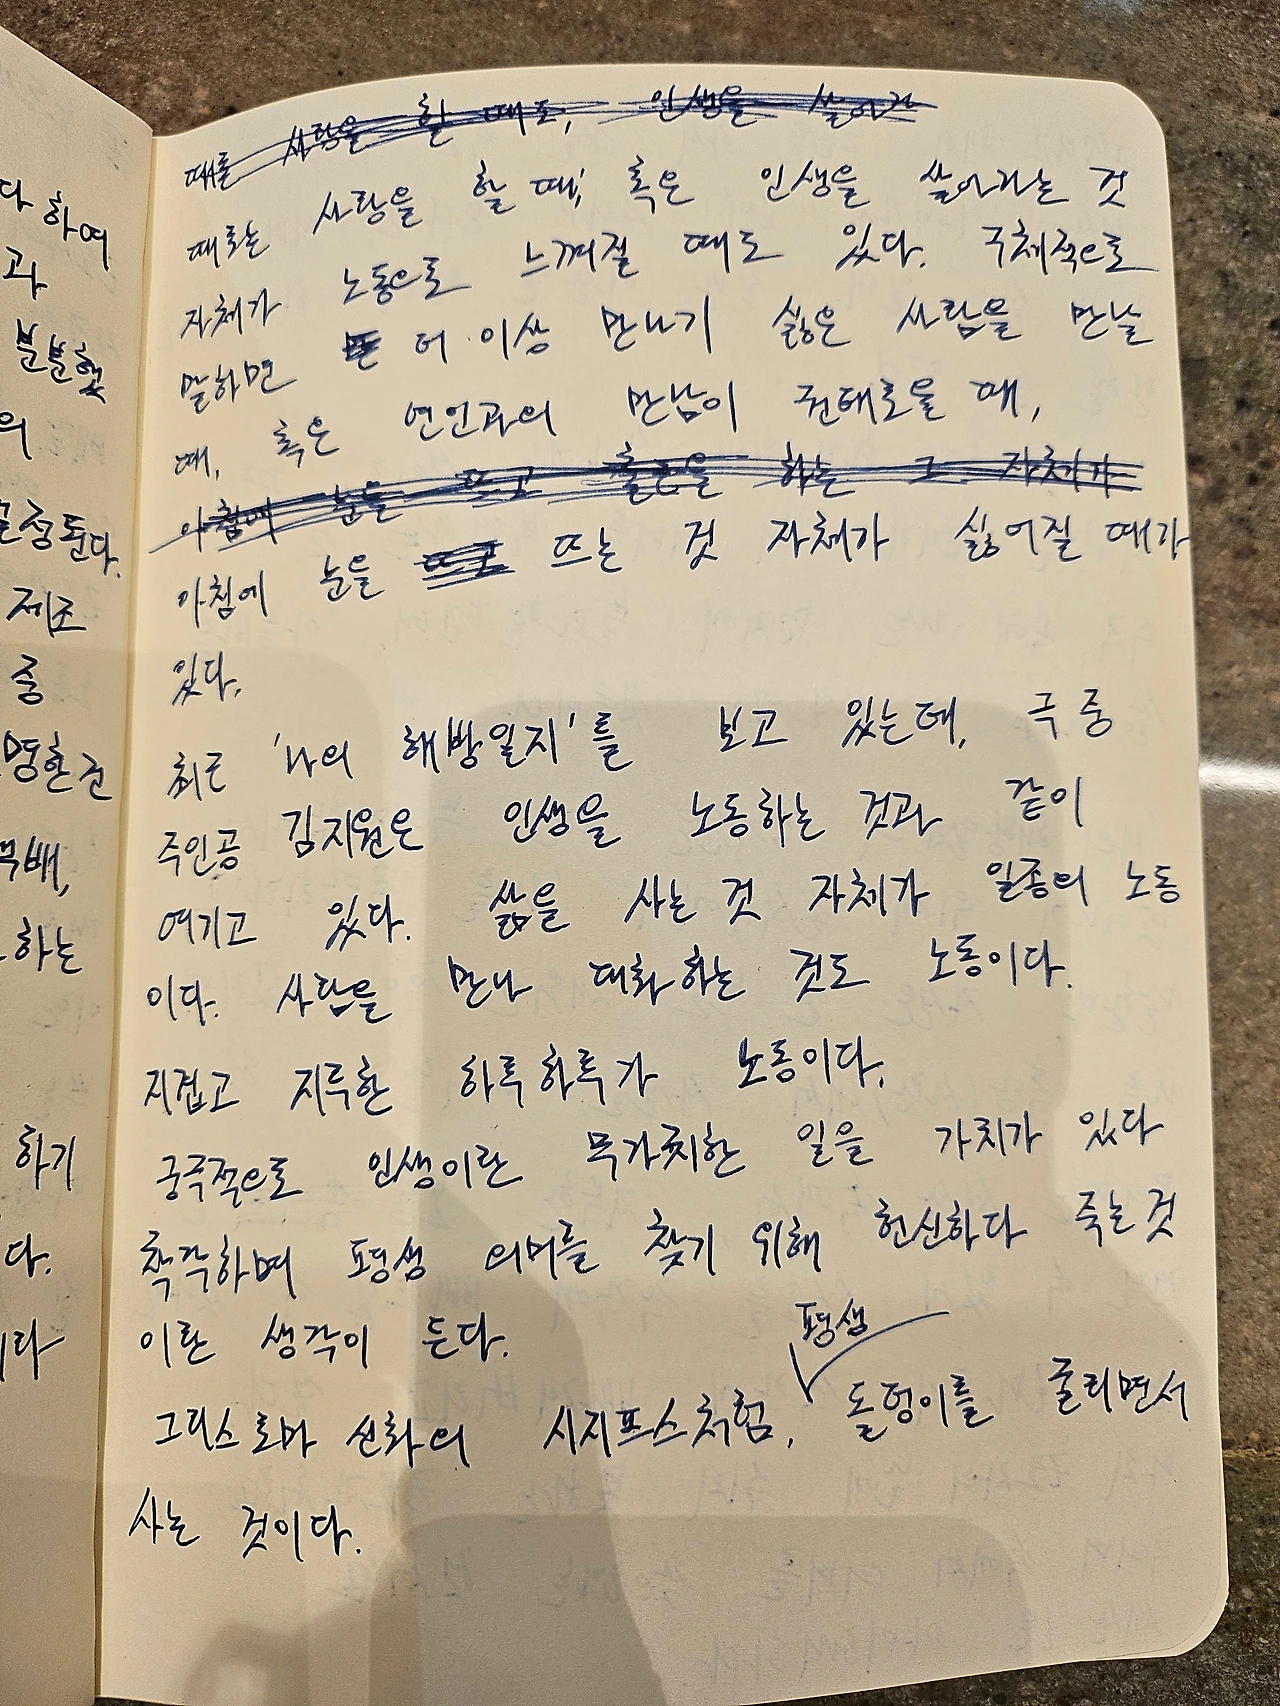 다 하여
과
분분했
의
제조
중
하는
하기
다.
때를 사랑을 할 때도, 인생을 살아가
때로는 사랑을 할 때, 혹은 인생을 살아가는 것
자체가 노동으로 느껴질 때도 있다. 구체적으로
말하면 더 이상 만나기 싫은 사람을 만날
때, 혹은 연인과의 만남이 권태로울 때,
아침에 눈을 뜨고 출근을 하는 그 자체가
아침에 눈을 뜨는 것 자체가 싫어질 때가
있다.
최근 '나의 해방일지'를 보고 있는데, 극 중
주인공 김지원은 인생을 노동하는 것과 같이
여기고 있다. 삶을 사는 것 자체가 일종의 노동
이다. 사람을 만나 대화하는 것도 노동이다.
지겹고 지루한 하루하루가 노동이다.
궁극적으로 인생이란 무가치한 일을 가치가 있다
착각하며 평생 의미를 찾기 위해 헌신하다 죽는 것
이란 생각이 든다.
평생
그리스 로마 신화의 시지프스처럼, 돌덩이를 굴리면서
사는 것이다.